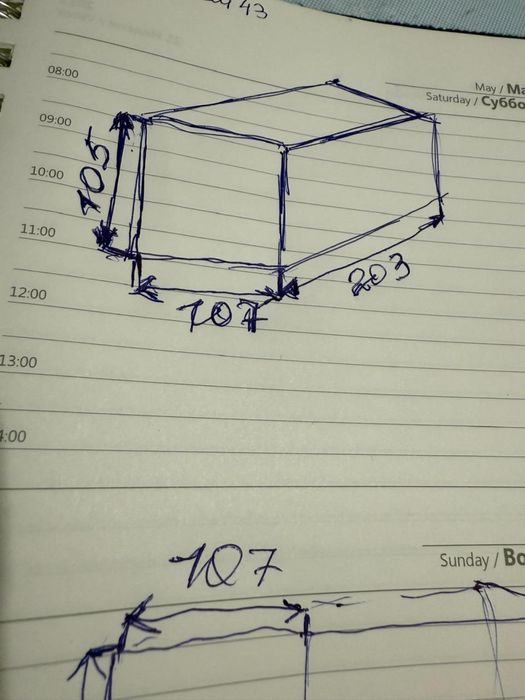 43
May / Ma
Saturday / Суббо
08:00
09:00
10:00
11:00
12:00
13:00
4:00
105
107
203
Sunday / Во
107